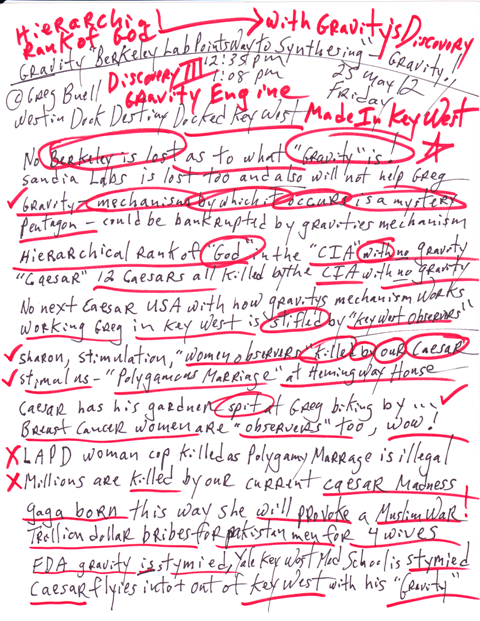 HiERARCHig → with GRAvity's Discovery
RAnk of GoD
Gravity "Berkeley Lab Points Way to Synthesing" - Gravity!!
Discovery III 12:35 pm
1:08 pm 25 May 12
@ Greg Buell GRAvity Engine Friday
Westin Dock Destiny Docked Key West Made In Key West
No Berkeley is lost as to what "Gravity" is!
Sandia Labs is lost too and also will not help Greg
Gravity - mechanism by which it occurs is a mystery
Pentagon - could be bankrupted by gravities mechanism
Hierarchical Rank of "God" in the "CIA" with no gravity
"Caesar" 12 Caesars all killed by the CIA with no gravity
No next Caesar USA with how gravitys mechanism works
Working Greg in Key West is stifled by "Key West Observers"
Sharon, stimulation, "women observers" killed by our Caesar
Stimulus - "Polygamous Marriage" at Hemingway House
Caesar has his gardner spit at Greg biking by...
Breast Cancer women are "observers" too, wow!
X LAPD woman cop killed as Polygamy Marrage is illegal
X Millions are killed by our current caesar Madness
gaga born this way she will provoke a Muslim War!
Trollion dollar bribes for pakistan men for 4 wives
FDA gravity is stymied, Yale Key West Med School is stymied
Caesar flyies into + out of Key West with his "Gravity"